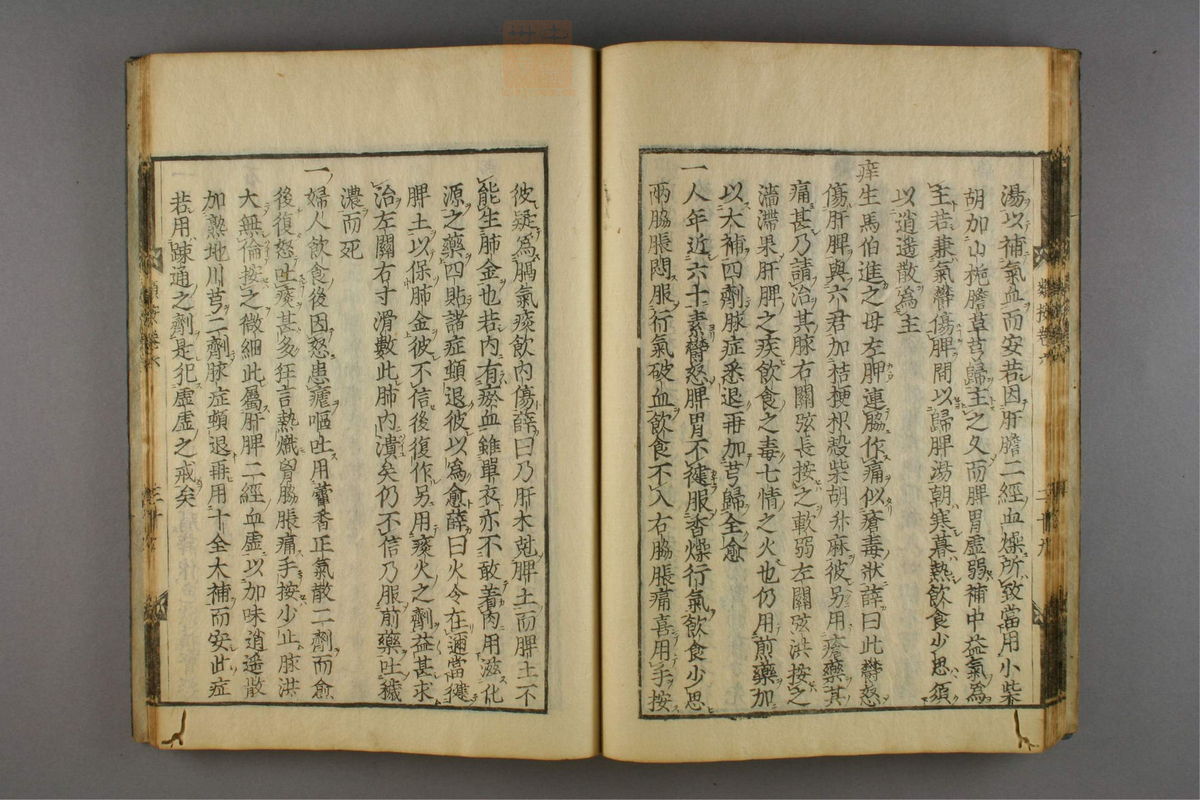 湯以補氣血而安若因肝膽二經血燥所致當用小柴
胡加山梔膽草芎歸主之久而脾胃虛弱補中益氣為
主若兼氣欝傷脾間以歸脾湯朝寒暮熱飲食少思須
以逍遥散為主
庠生馬伯進之母左胛連脇作痛似瘡毒狀薛曰此欝怒
傷肝脾與六君加桔梗枳殼柴胡升麻彼另用瘡藥其
痛甚乃請治其脉右關弦長按之軟弱左關弦洪按之
濇滯果肝脾之疾飲食之毒七情之火也仍用煎藥加
以大補四劑脉症悉退再加芎歸全愈
一人年近六十素欝怒脾胃不健服香燥行氣飲食少思
兩脇脹悶服行氣破血飲食不入右脇脹痛喜用手按
彼疑為膈氣痰飲內傷薛曰乃肝木尅脾土而脾土不
能生肺金也若內有瘀血雖單衣亦不敢着肉用滋化
源之藥四貼諸症頓退彼以為愈薛曰火令在邇當健
脾土以保肺金彼不信後復作另用痰火之劑益甚求
治左關右寸滑數此肺內潰矣仍不信乃服前藥吐穢
濃而死
一婦人飲食後因怒患瘧嘔吐用藿香正氣散二劑而愈
後復怒吐痰甚多狂言熱熾胷脇脹痛手按少止脉洪
大無倫按之微細此屬肝脾二經血虛以加味逍遥散
加熟地川芎二劑脉症頓退再用十全大補而安此症
若用踈通之劑是犯虛虛之戒矣